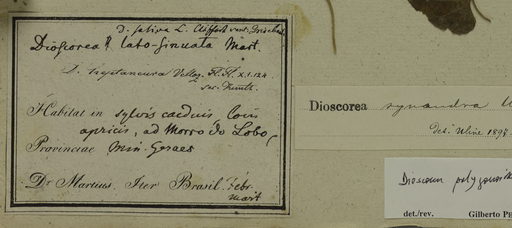 D. sativa L. Cliffort
Dioscorea lato-sinuata Mart.
D. heptaneura Velloz. Fl. Fl. X. t. 124
sec. Kunth.
Habitat in sylvis caeduis, locis
apricis, ad Morro do Lobo,
Provinciae Min. Geraes
Dr. Martius. Iter Brasil. Febr.
Mart
Dioscorea synandra
Det. Uline 1898
Dioscorea
det./rev. Gilberto